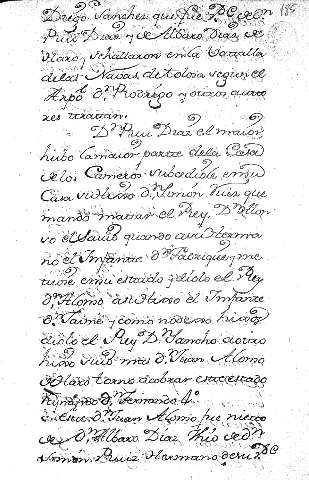 Diego Sanchez que fue
Ruiz Diaz y de Albaro Diaz, de
Haro, y se hallaron en la Vattalla
de las Navas de tolosa segun el
Arzpo. dn. Rodrigo y otros autto
res trattan.
Dn. Rui Diaz el maior
hubo la maior parte de la Casa
de los Cameros subcediole en su
Casa su Dn. Simón Ruiz que
mando mattar el Rey Dn. Alon
so el Savio quando a su Herma
no el Infante Dn. Fadrique y me
tiose en su estado y diolo el Rey
Dn. Alonso a su el Infante
Dn. Jaime y como no
diolo el Rey Dn. Sancho a otro
hijo Dn. Juan Alonso
de Haro torno a cobrar este estado
Dn. Fernando 4o.
este Dn. Juan Alonso fue nieto
de Dn. Albaro Diaz Thio de Dn.
Simon Ruiz Hermano de su